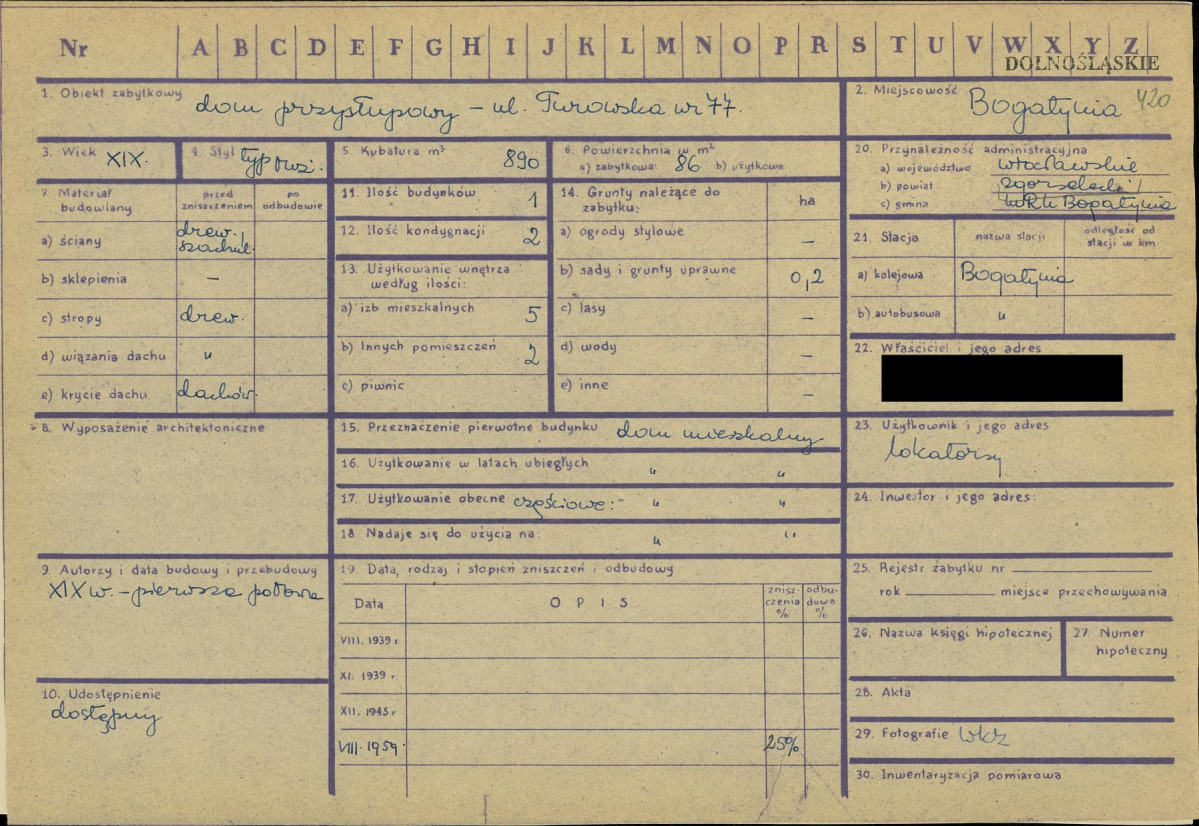 Nr A B C D E F G H I J K L M N O P R S T U V W X Y Z
DOLNOŚLĄSKIE
1. Obiekt zabytkowy dom przysłupowy – ul. Turowska nr 77.
2. Miejscowość Bogatynia 420
3. Wiek XIX.
4. Styl
5. Kubatura m³ 890
6. Powierzchnia w m²
a) zabytkowa: 86 b) użytkowa
7. Materiał budowlany
przed zniszczeniem
po odbudowie
a) ściany drew. szachul.
b) sklepienia –
c) stropy drew.
d) wiązania dachu "
e) krycie dachu dachów.
11. Ilość budynków 1
12. Ilość kondygnacji 2
13. Użytkowanie wnętrza
według ilości:
a) izb mieszkalnych 5
b) Innych pomieszczeń 2
c) piwnic
14. Grunty należące do
zabytku: ha
a) ogrody stylowe –
b) sady i grunty uprawne 0,2
c) lasy –
d) wody –
e) inne –
20. Przynależność administracyjna
a) województwo wrocławskie
b) powiat zgorzelecki
c) gmina Bogatynia
21. Stacja
nazwa stacji
odległość od
stacji w km
a) kolejowa Bogatynia
b) autobusowa "
22. Właściciel i jego adres
8. Wyposażenie architektoniczne
15. Przeznaczenie pierwotne budynku dom mieszkalny
16. Użytkowanie w latach ubiegłych " "
17. Użytkowanie obecne częściowe: – " "
18 Nadaje się do użycia na: " "
23. Użytkownik i jego adres
lokatorzy
24. Inwestor i jego adres:
9. Autorzy i data budowy i przebudowy
XIX w. – pierwsza połowa
10. Udostępnienie
dostępny
19. Data, rodzaj i stopień zniszczeń i odbudowy
Data
OPIS
znisz-
czenia
%
odbu-
dowa
%
VIII. 1939 r.
XI. 1939 r.
XII. 1945 r
VIII. 1959. 25%
25. Rejestr zabytku nr
rok miejsce przechowywania
26. Nazwa księgi hipotecznej
27. Numer
hipoteczny
28. Akta
29. Fotografie WKZ
30. Inwentaryzacja pomiarowa